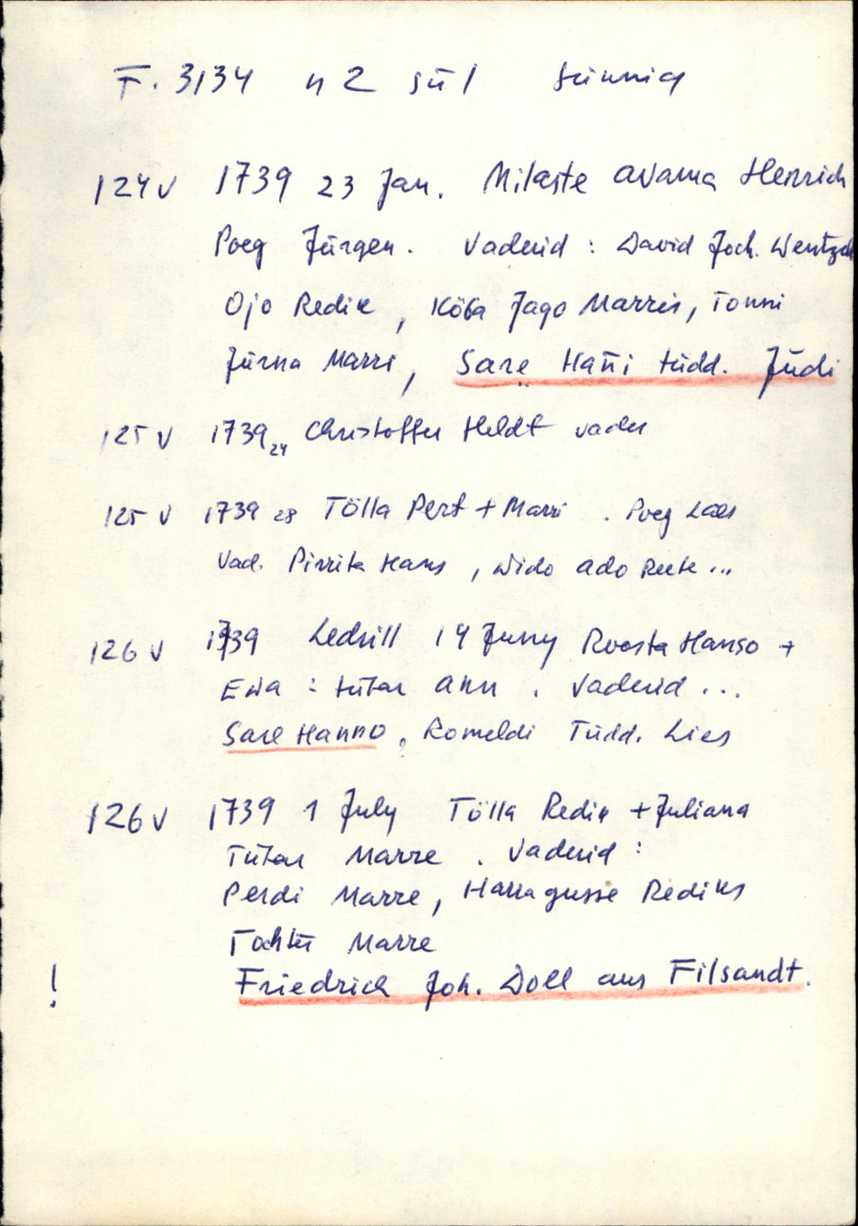 F. 3134 n 2 sü 1 sünnid
124v 1739 23 Jan. Milaste avama Henrich
Poeg Jürgen. Vaderid: David Joch. Wentzel
Ojo Redik, Köba Jago Marris, Tonni
Jürna Marri, Sare Hañi tüdd. Jüdi
125 v 1739 24 Christoffer Heldt vader
125 v 1739 28 Tölla Pert + Marri. Poeg Laes
Vad. Pirrita Hans, Wido Ado Reet...
126 v 1739 14 Juny Roosta Hanso +
Ewa: tütar Ann. Vaderid...
Sare Hanno, Romeldi Tüdd. Lies
126 v 1739 1 July Tölla Redik + Juliana
Tütar Marre. Vaderid:
Perdi Marre, Harragusse Rediks
Tochter Marre
! Friedrich Joh. Doll aus Filsandt.